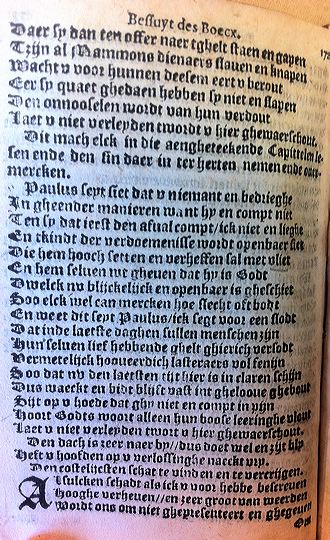 Besluyt des Boecx.
Daer sy dan ten offer naer tghelt staen en gapen
Tzijn al Mammons dienaers slauen en knapen
Wacht v voor hunnen deesem eert v berout
Eer sy quaet ghedaen hebben sy niet en slapen
Den onnooselen wordt van hun verdout
Laet v niet verleyden twordt v hier ghewaerschout.
Dit mach elck in die aenghetekende Capittelen le-
sen ende den sin daer in ter herten nemen ende
mercken.
Paulus seyt siet dat v niemant en bedrieghe
In gheender manieren want hy en compt niet
Ten sy dat ierst den afual compt/ick niet en lieghe
En tkindt der verdoemenisse wordt openbaer siet
Die hem hooch setten en verheffen sal met vliet
En hem seluen wt gheuen dat hy is Godt
Dwelck nv blijckelijck en openbaer is gheschiet
Soo elck wel can mercken hoe slecht oft bodt
En weet dit seyt Paulus/ick segt voor een slodt
Dat inde laetste daghen sullen menschen zijn
Hun seluen lief hebbende ghelt ghierich versodt
Vermetelijck hooueerdich lasteraers vol fenijn
Soo dat nv den laetsten tijt hier is in claren schijn
Dus waeckt en bidt blijft vast int gheloove ghebout
Sijt op v hoede dat ghy niet en compt in pijn
Hoort Godts woort alleen hun boose leeringhe vlout
Laet v niet verleyden twort v hier ghewaerschout.
Den dach is zeer naer by//dus doet wel en zijt bly
Heft v hoofden op v verlossinghe naeckt vry.
Den costelijcsten schat te vinden en te vercrijgen.
Alsulcken schadt als ick v voor hebbe beschreuen
Hooghe verheuen//en zeer groot van weerden
Wordt ons om niet ghepresenteert en ghegeuen